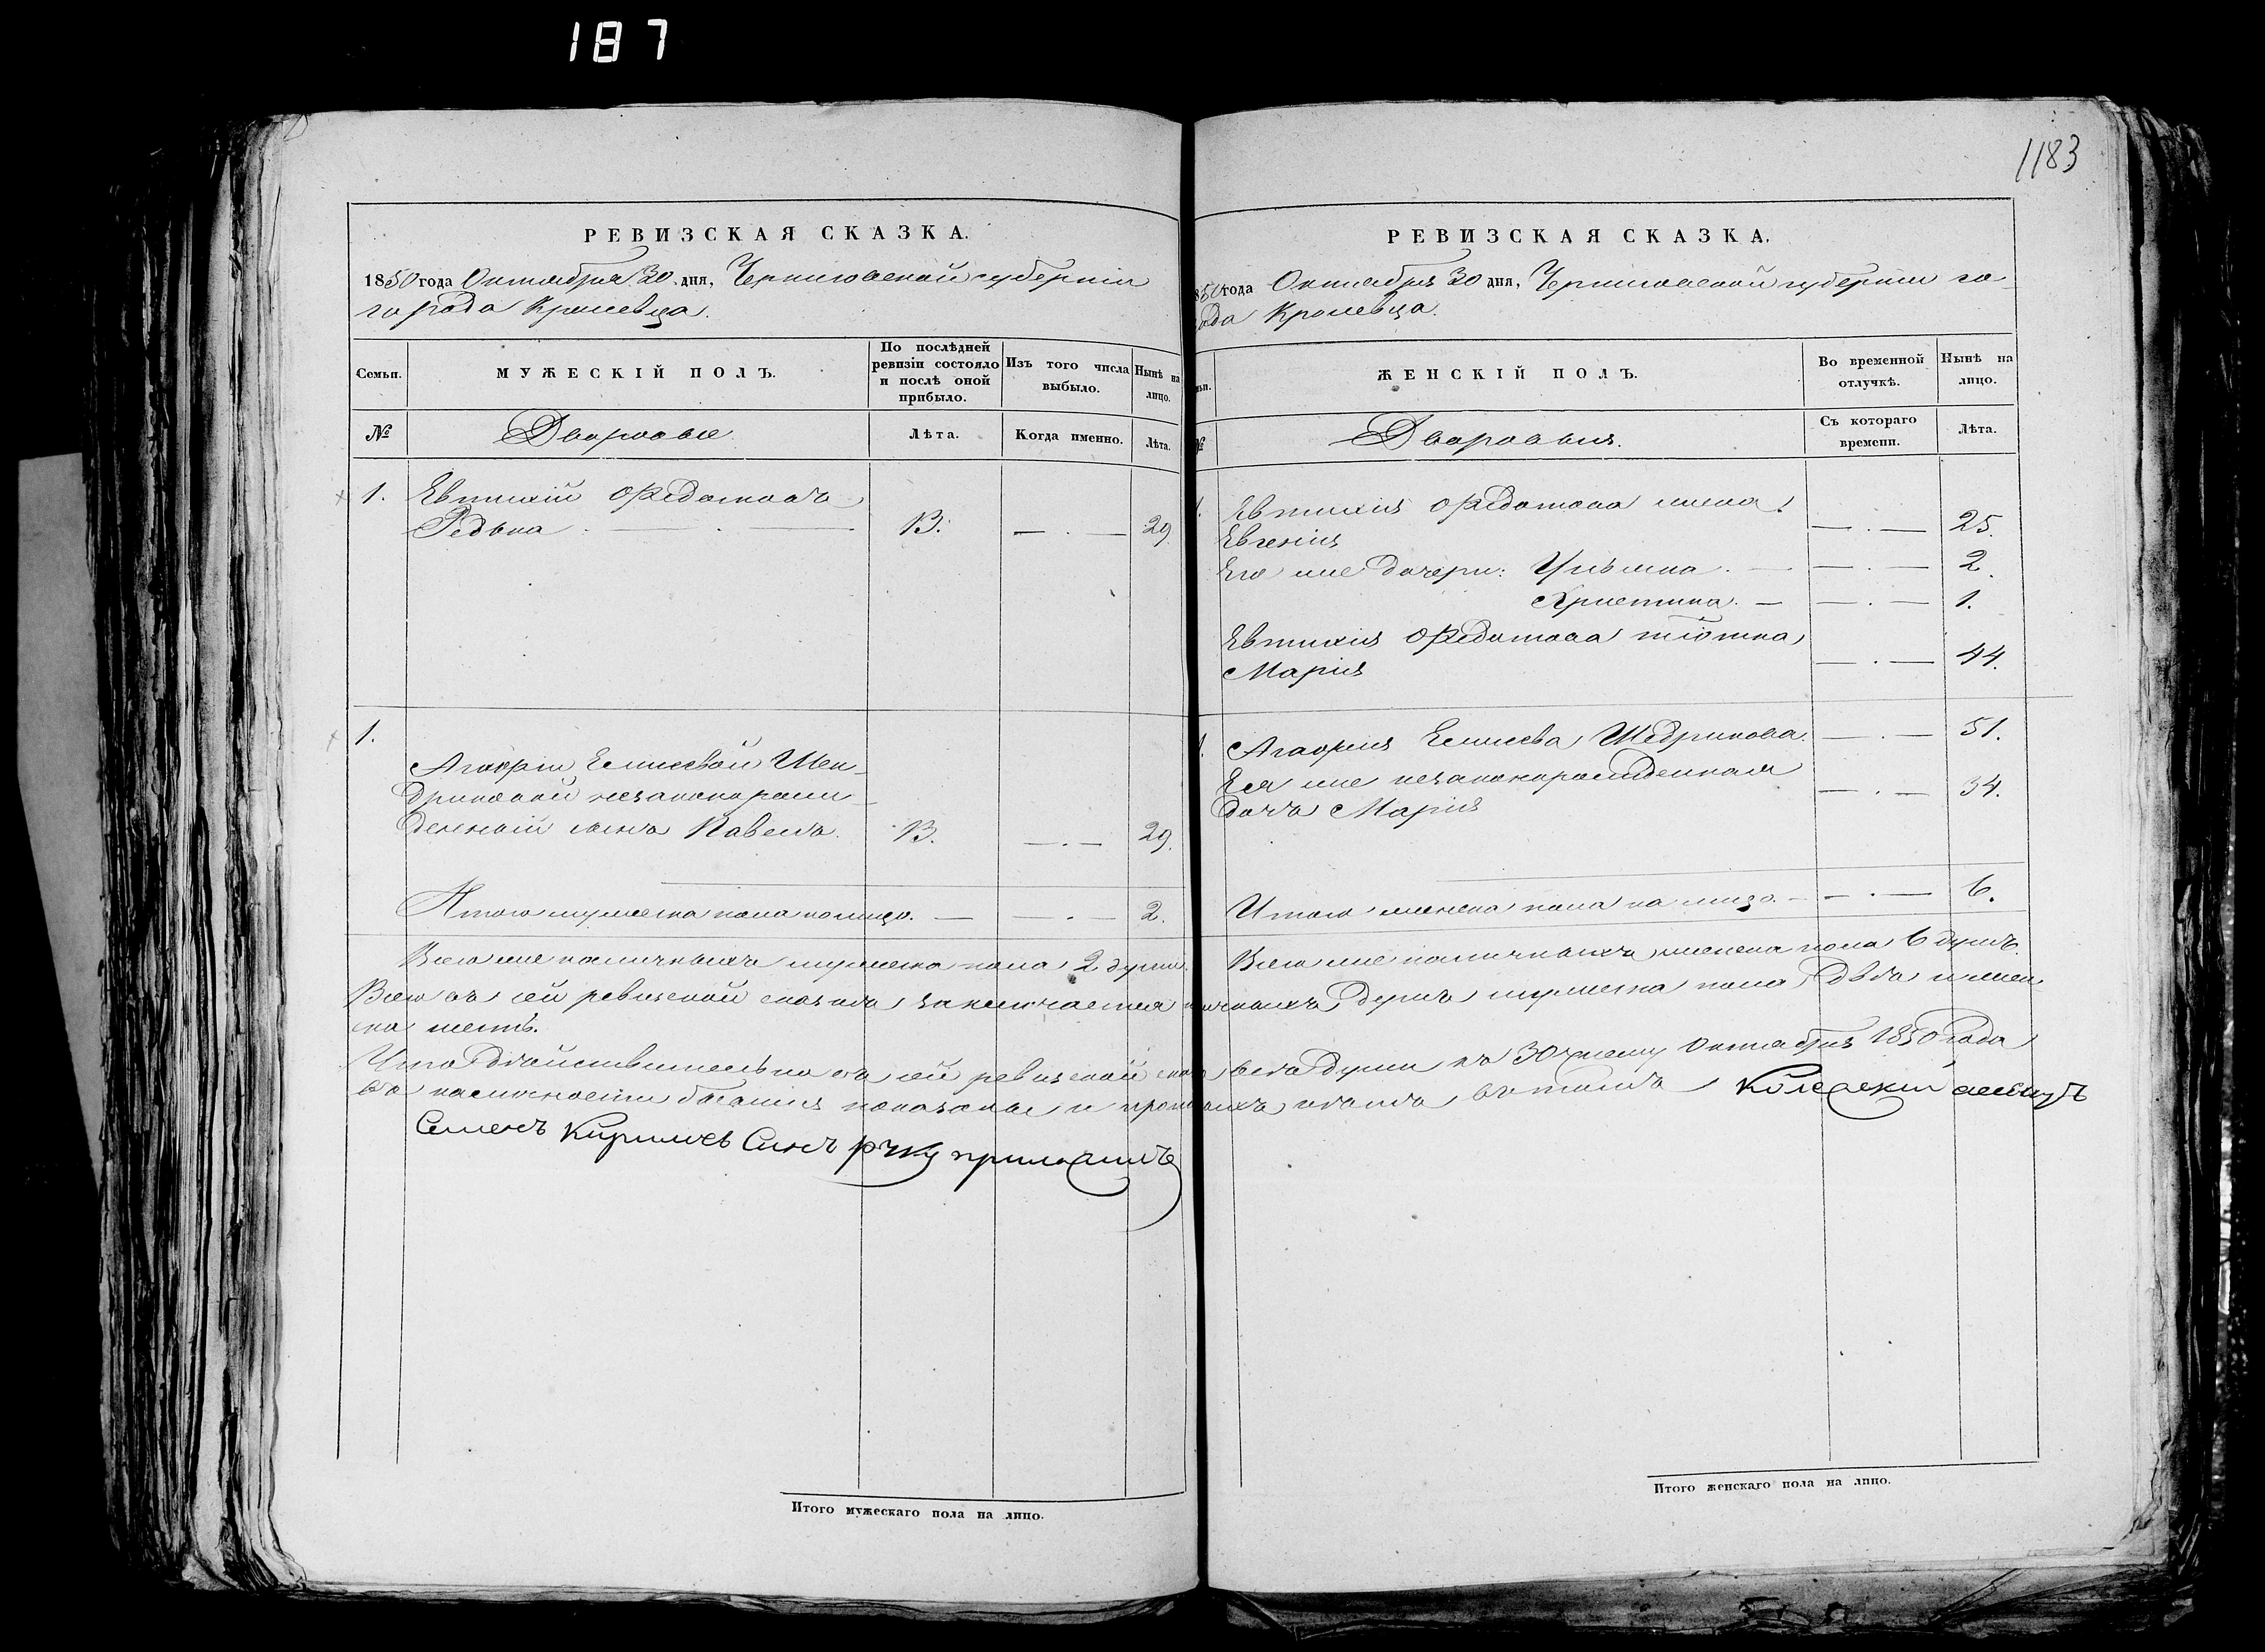 187
1183
РЕВИЗСКАЯ СКАЗКА.
1850 года Октября 30 дня, Черниговской губернии
города Кролевца.
Семьи.
МУЖЕСКІЙ ПОЛЪ.
По послѣдней
ревизіи состояло
и послѣ оной
прибыло.
Изъ того числа
выбыло.
Нынѣ на
лицо.
№
Дворовые
Лѣта.
Когда именно.
Лѣта.
1. Евтихій Федотовъ
Редька 13. — . — 29.
1.
Агафіи Елисевой Щед-
риновой незаконорож
денный сынъ Павелъ. 13. — . — 29.
Итого мужеска пола налицо. — — . — 2.
Всего же наличныхъ мужеска пола 2 души.
РЕВИЗСКАЯ СКАЗКА.
850 года Октября 30 дня, Черниговской губерніи го-
ода Кролевца.
ьи.
ЖЕНСКІЙ ПОЛЪ.
Во временной
отлучкѣ.
Нынѣ на
лицо.
№
Дворовыя.
Съ котораго
времени.
Лѣта.
1. Евтихія Федотова жена
Евгенія — . — 25.
Его же дочери: Ульяна. — — . — 2.
Христина. — — . — 1.
Евтихія Федотова тіотка
Марія — . — 44.
1. Агафія Елисева Щедринова. — . — 51.
Ея же незаконорожденная
дочь Марія — . — 34.
Итого женска пола на лицо. — — . — 6.
Всего же наличныхъ женска пола 6 душъ.
Всего въ сей ревизской сказкѣ заключается душъ мужеска пола двѣ и жен
ска шесть.
Что дѣйствительно въ сей ревизской души къ 30 чному Октября 1850 года
въ наличности показаны и въ томъ
Семенъ Кириловъ Синъ руку приложилъ
Итого мужескаго пола на лицо.
Итого женскаго пола на лицо.